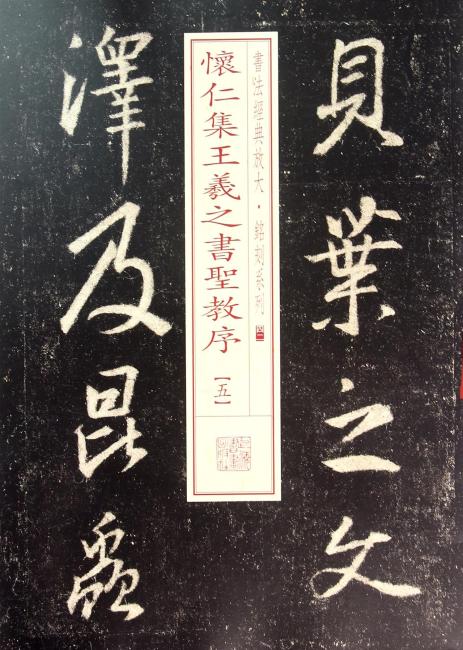 貝葉之文
書法經典放大·銘刻系列 四一
懷仁集王羲之書聖教序
【五】
澤及昆蟲